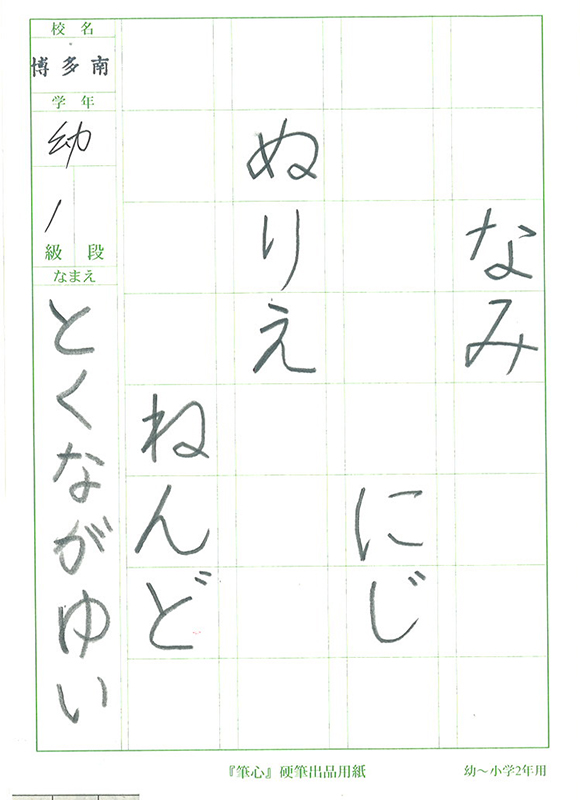 なみ
にじ
ぬりえ
ねんど
校名
博多南
学年
幼
1
級 段
なまえ
とくながゆい
『筆心』硬筆出品用紙
幼～小学2年用